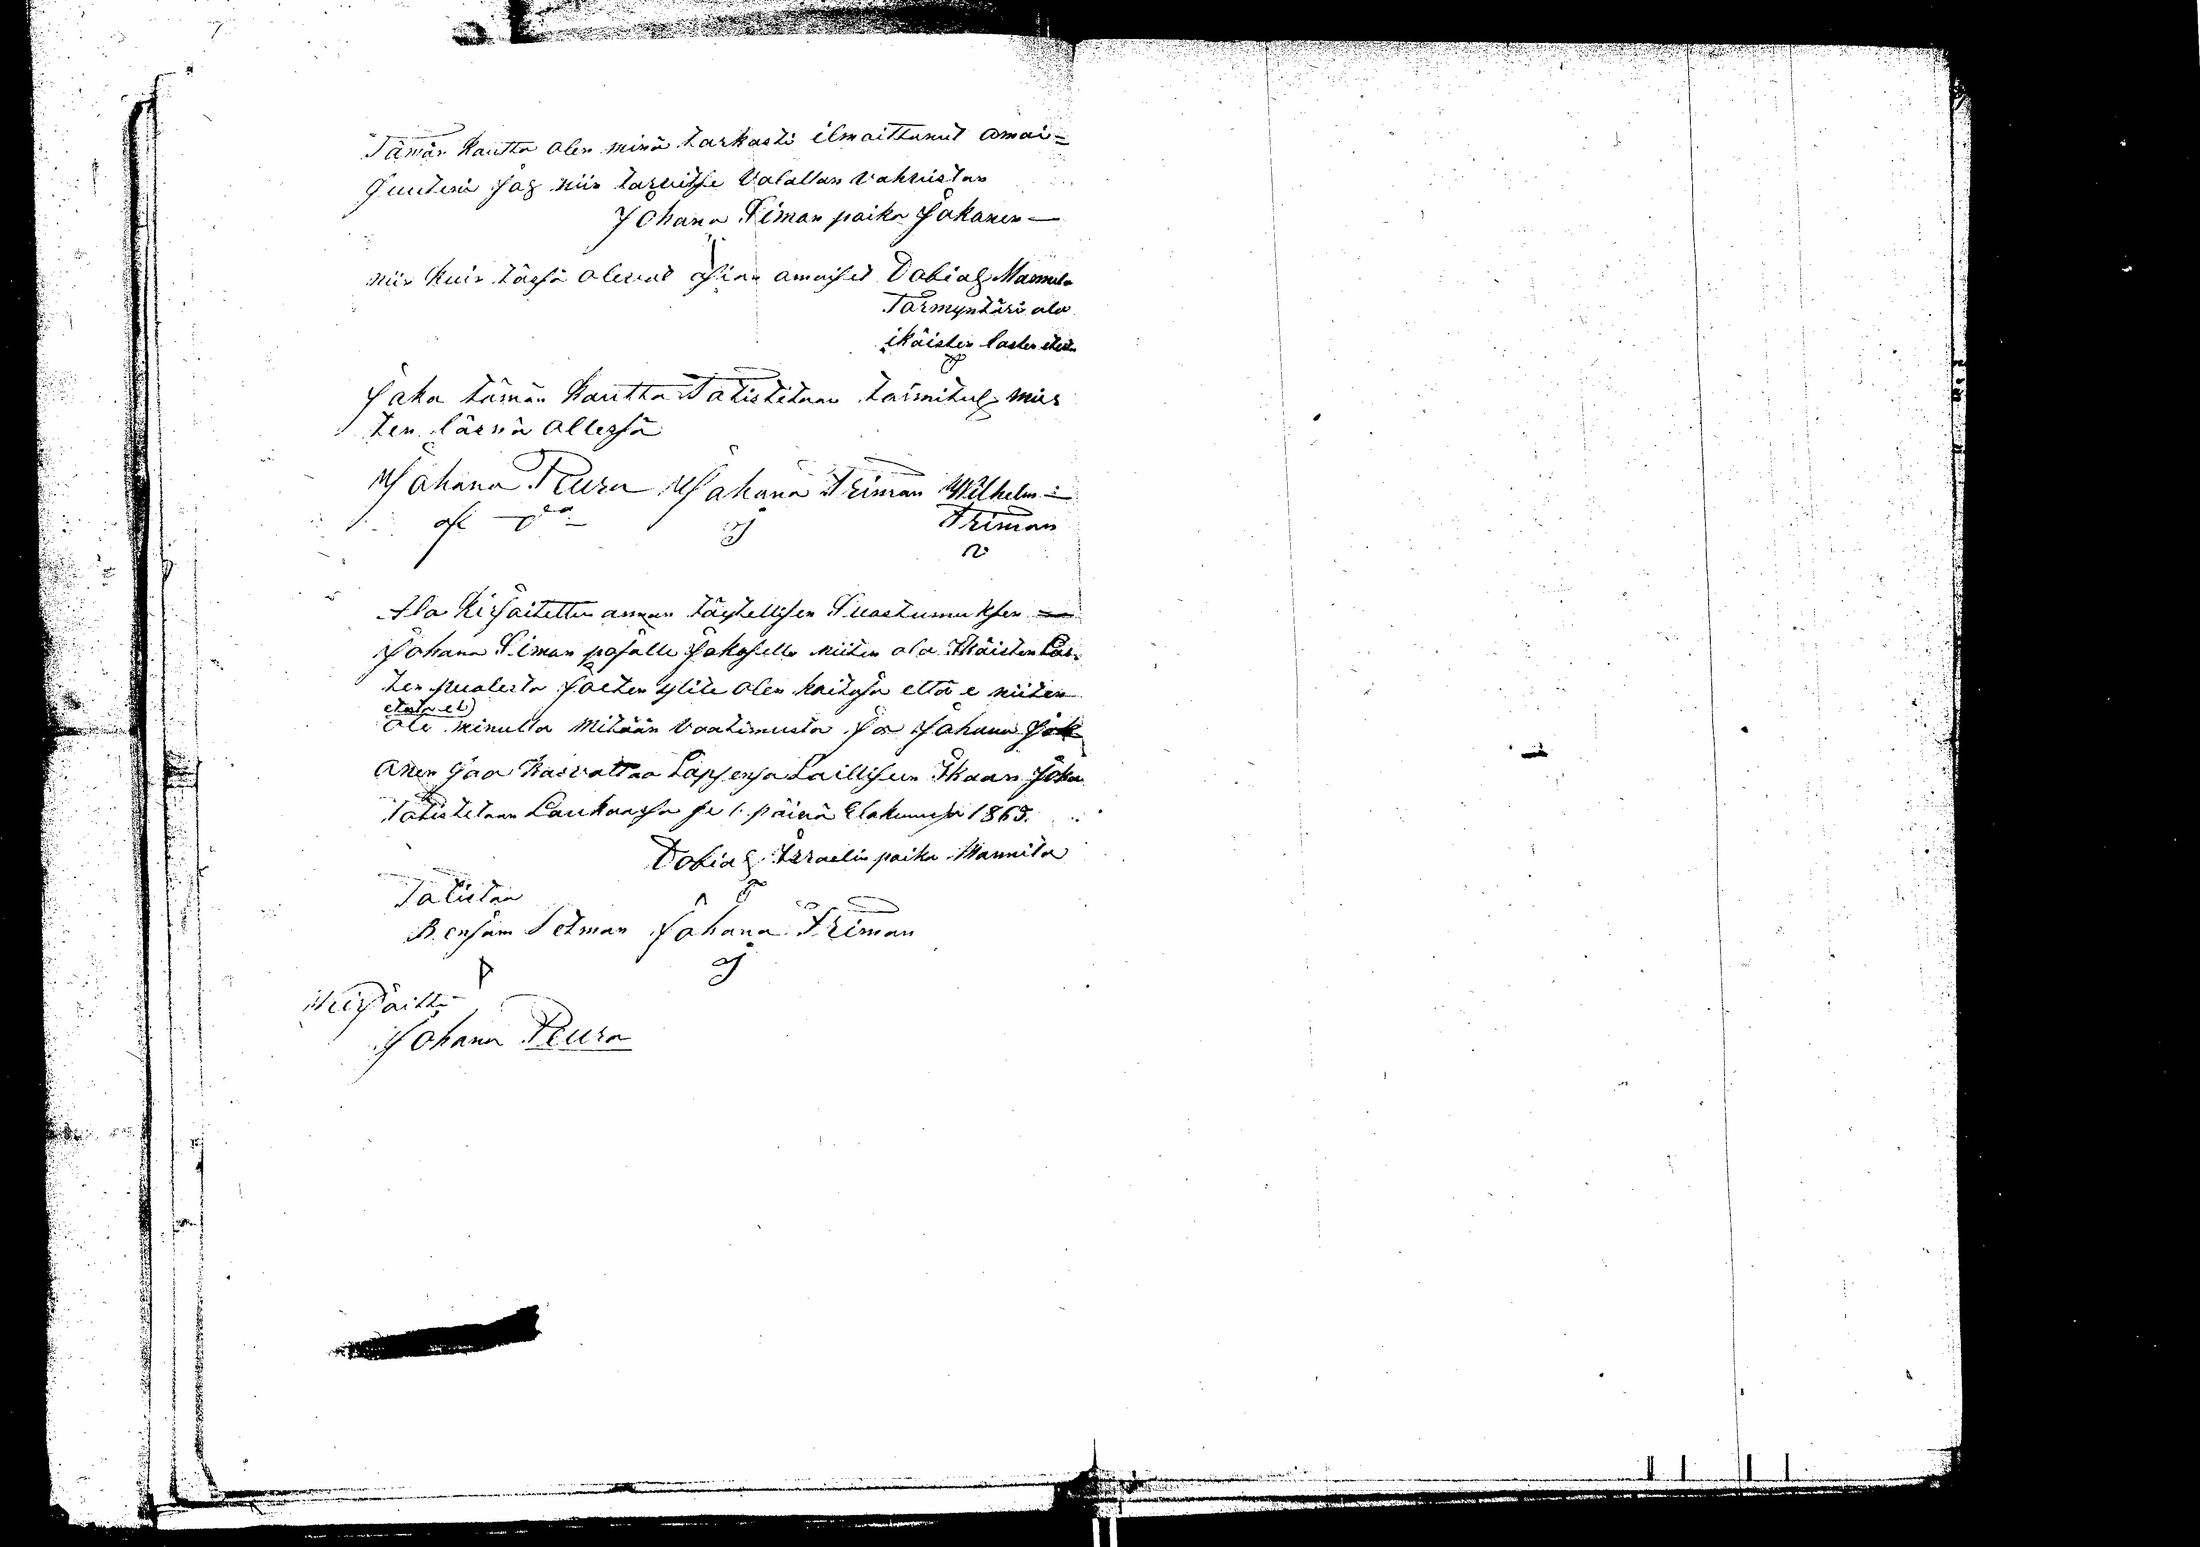 Tämän Kautta olen minä tarkasti ilmaittanut amai=
Suuteni jos niin tarvitse Valallan vahvistan
Johana Siman paika Jokanen —
niin kuin tässä olevat asian amaiset Dobias Mannila
Tarmyntäri ala
ikäisten lasten
Joka tämän Kautta Tatistetaan taimitus mies
ten läsnä Ollessa
Johana Peura Johana Friman Wilhelm =
Friman
Ala Kirjaitettu annan täytellisen Suastumuksen —
Johana Siman pojalle Jokoselle niiten ala Ikäisten Las
ten puolesta joiten ylite olen haitaja että e niiten
ole minulla Mitään Vaatimusta Jos Johana Jok
anen Saa Kasvattaa Lapsensa Laillisen Ikaan Joka
Tatistetaan Laukaassa se 1. päivä Elokuussa 1865.
Dobias Israelin paika Mannila
Tatistaa
Benjam Setman Johana Friman
Kirjaitti
Johana Peura